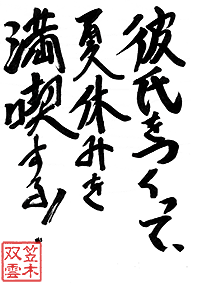 彼氏をつくって、
夏休みを
満喫する!!
笠木
双雲